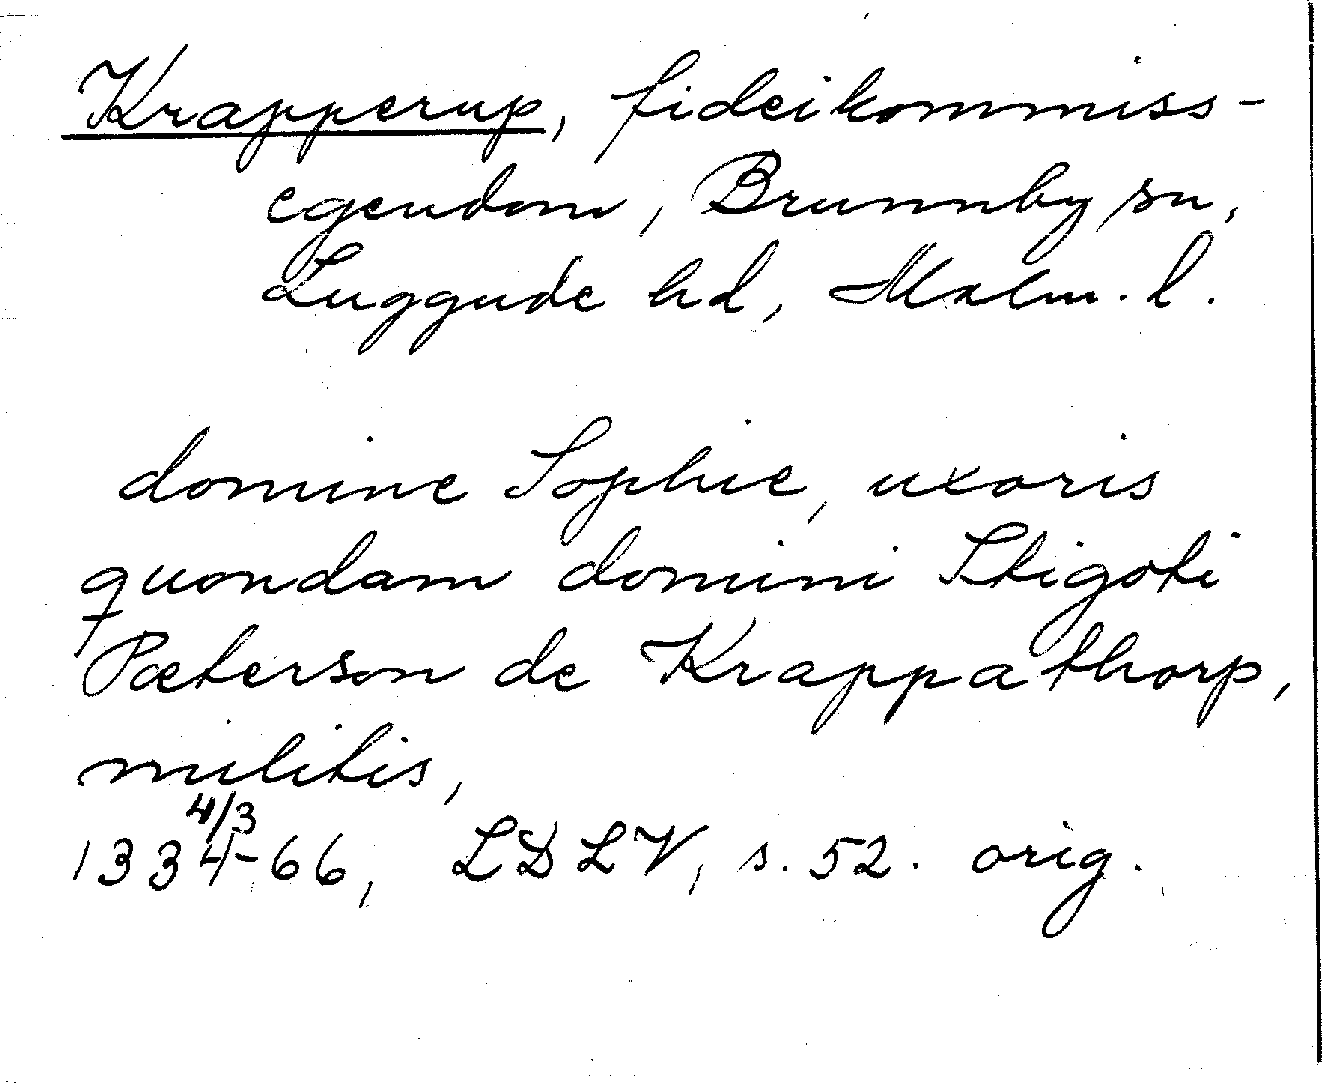 Krapperup, fideikommiss-
egendom, Brunnby sn,
Luggude hd, Malm. l.
domine Sophie, uxoris
quondam domini Stigoti
Pæterson de Krappathorp,
militis,
4/3
1334-66, LDLV, s. 52. orig.